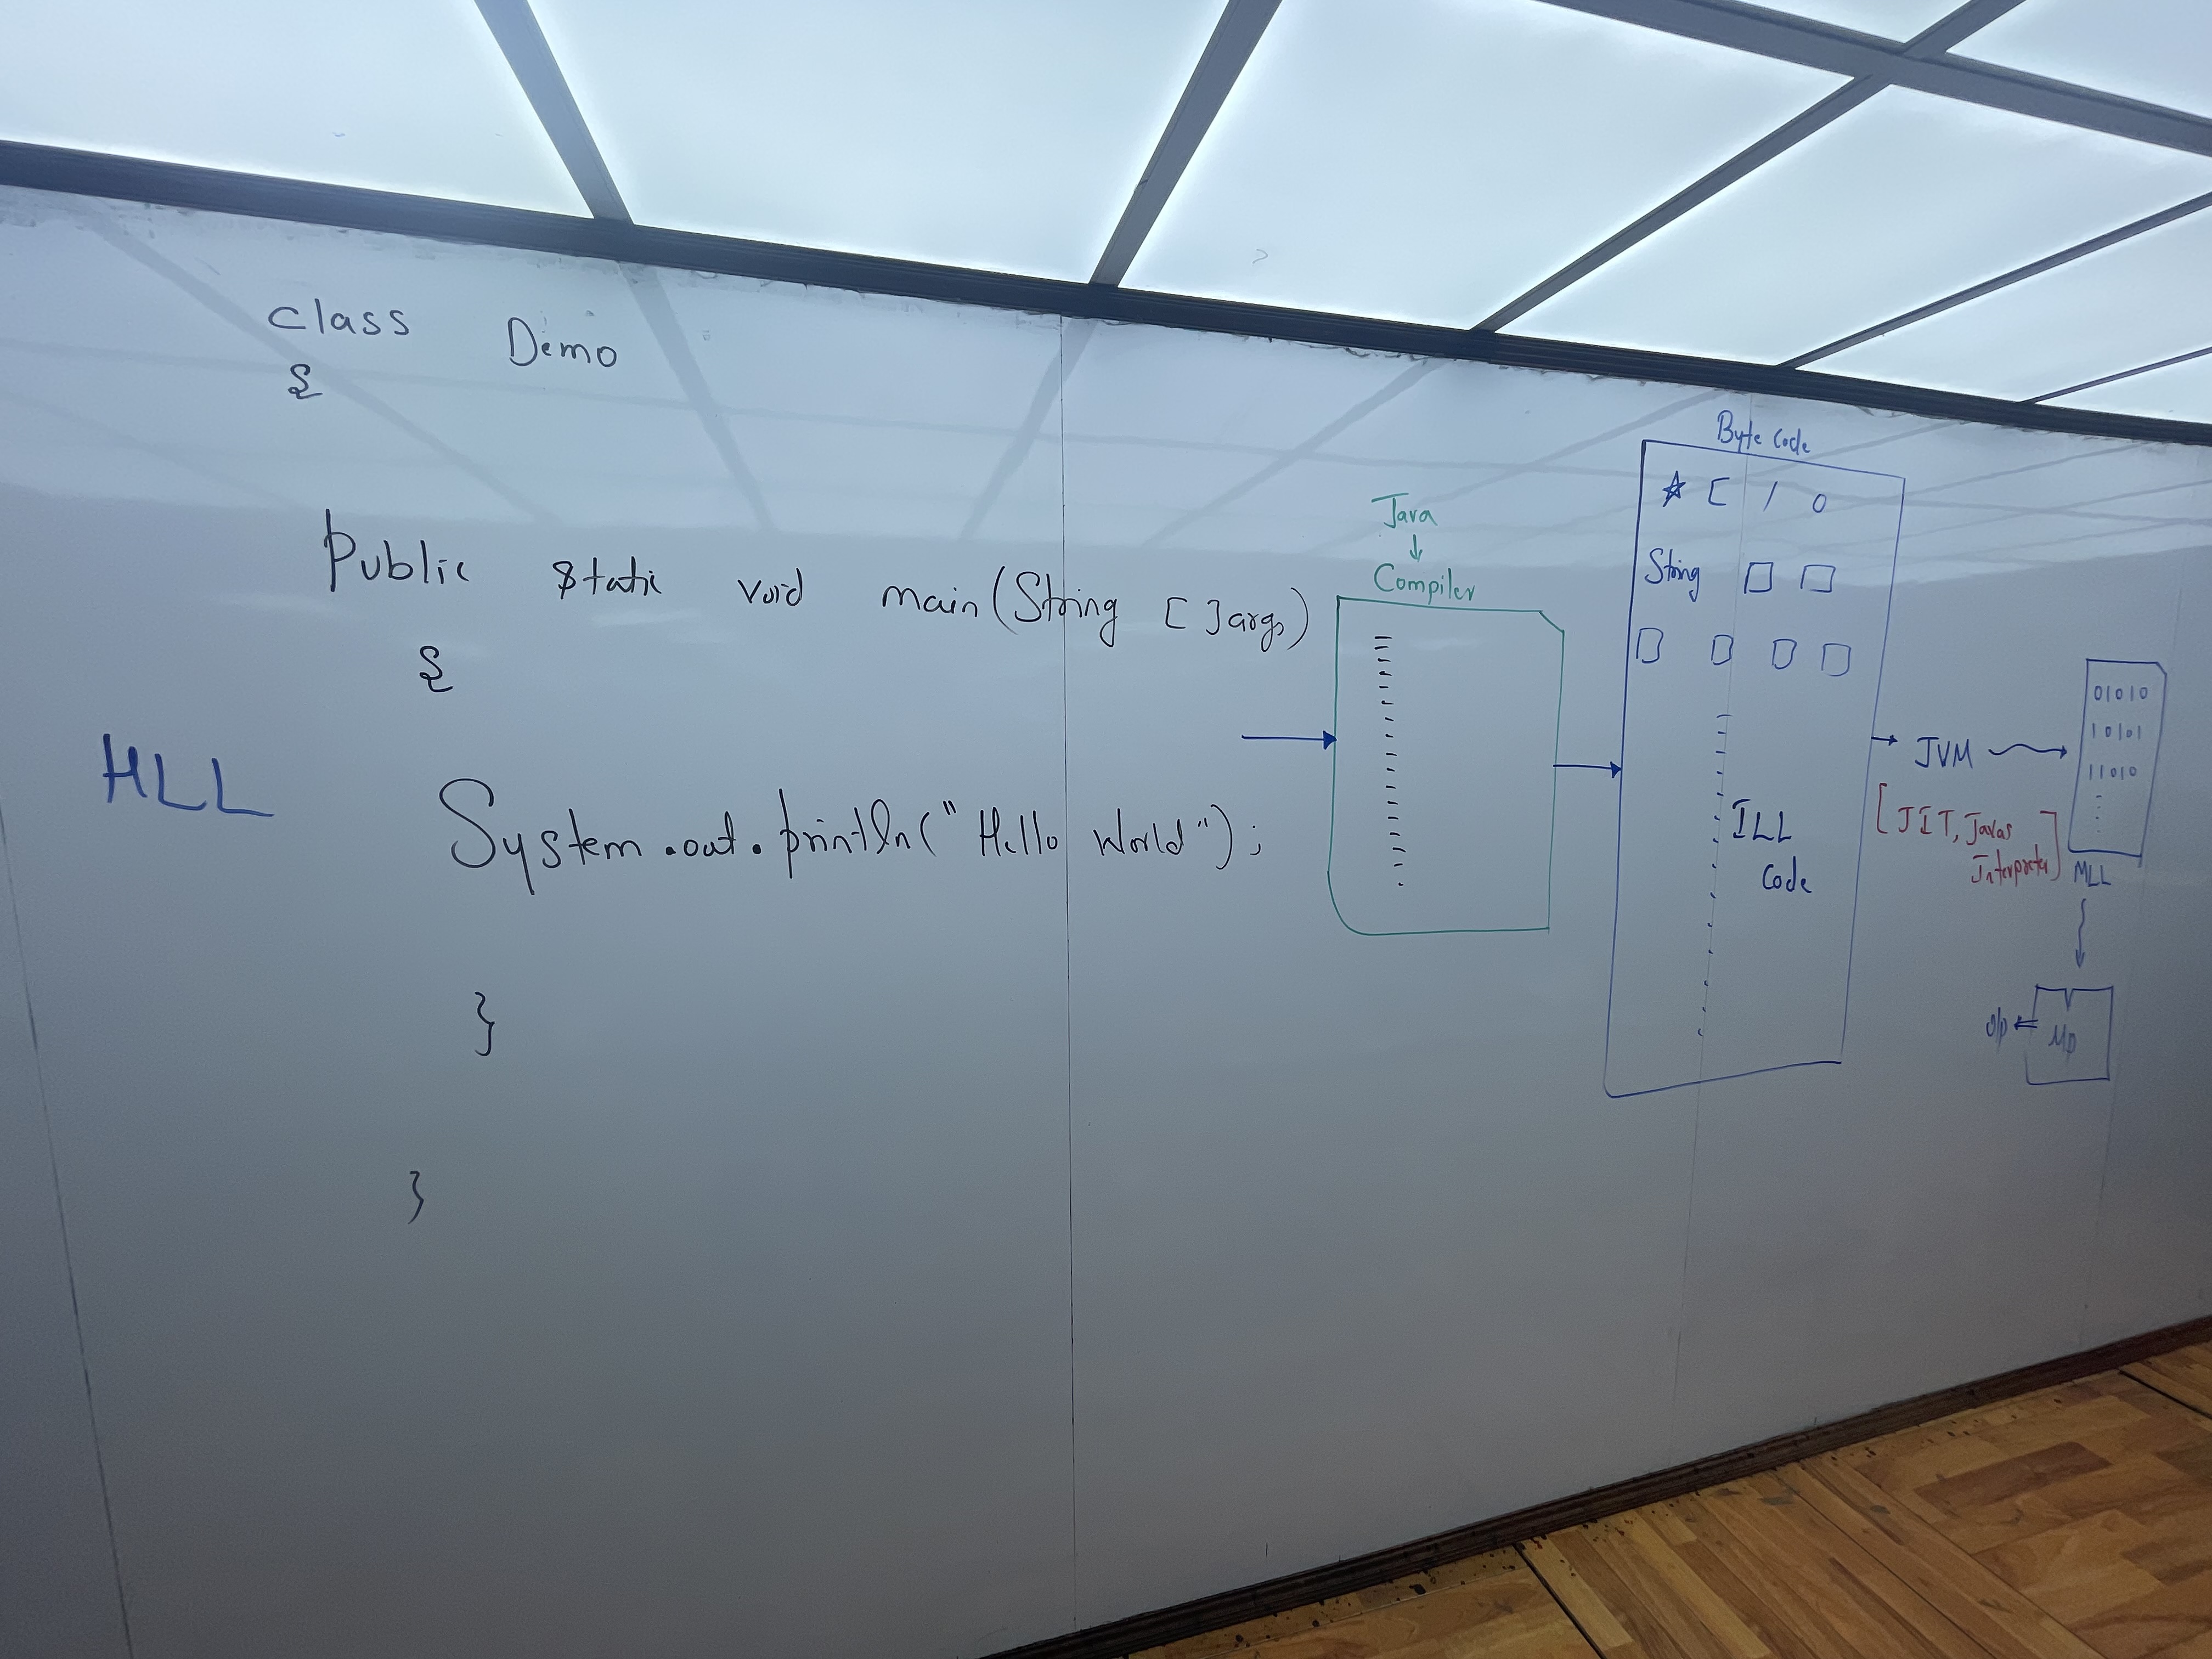 class Demo
{
Public static void main(String [ ]args)
{
HLL
System.out.println("Hello World");
}
}
Java
↓
Compiler
Byte Code
☆ [ / 0
String □ □
□ □ □ □
ILL
Code
→ JVM
[JIT, Javas
Interpreter]
01010
10101
11010
MLL
o/p
MP